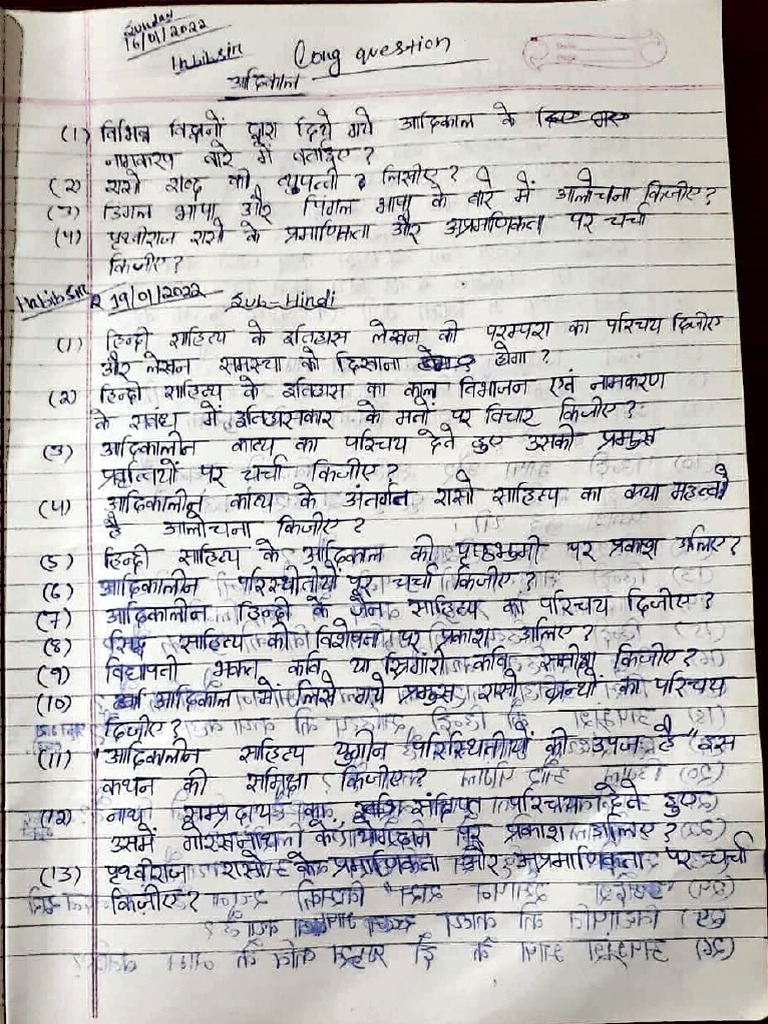 Sunday
16/01/2022
Habib sir
Long question
आदिकाल
(1) विभिन्न विद्वानों द्वारा दिये गये आदिकाल के
नामकरण बारे में बताइए?
(2) रासो शब्द की व्युपत्ती लिखीए?
(3) डिंगल भाषा और पिंगल भाषा के बारे में आलोचना किजीए?
(4) पृथ्वीराज रासो के प्रमाणिकता और अप्रमाणिकता पर चर्चा
किजीए?
Habib Sir 19/01/2022 Sub-Hindi
(1) हिन्दी साहित्य के इतिहास लेखन की परम्परा का परिचय दिजीए
और लेखन समस्या को दिखाना होगा?
(2) हिन्दी साहित्य के इतिहास का काल विभाजन एवं नामकरण
के सबंध में इतिहासकार के मतों पर विचार किजीए?
(3) आदिकालीन काव्य का परिचय देते हुए उसकी प्रमुख
प्रर्वात्तयों पर चर्चा किजीए?
(4) आदिकालीन काव्य के अंतर्गत रासो साहित्य का क्या महत्व
है आलोचना किजीए?
(5) हिन्दी साहित्य के आदिकाल की पृष्ठभुमी पर प्रकाश डालिए?
(6) आदिकालीन परिस्थीतीयों पर चर्चा किजीए?
(7) आदिकालीन हिन्दी के जैन साहित्य का परिचय दिजीए?
(8) सिद्ध साहित्य की विशेषता पर प्रकाश डालिए?
(9) विद्यापती भक्त कवि या कवि किजीए?
(10) आदिकाल में लिखे गये प्रमुख रासो ग्रन्थों का परिचय
दिजीए?
(11) "आदिकालीन साहित्य युगीन परिस्थितीयों की उपज है" इस
कथन की समिक्षा किजीए?
(12) नाथ सम्प्रदाय का संक्षिप्त परिचय देते हुए
उसमें गोरखनाथ के योगदान पर प्रकाश डालिए?
(13) पृथ्वीराज रासो के प्रमाणिकता और अप्रमाणिकता पर चर्चा
किजीए?